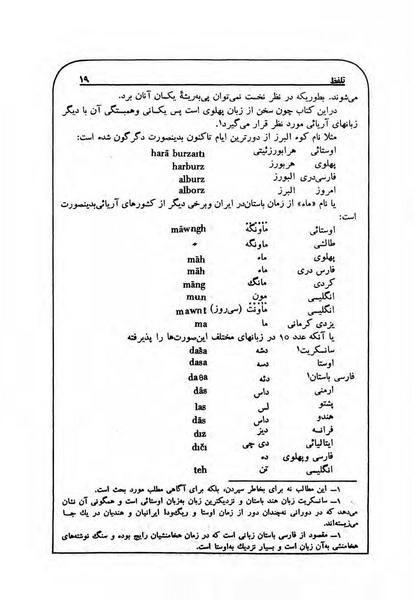 تلفظ ۱۹
می‌شوند. بطوریکه در نظر نخست نمی‌توان پی‌به‌ریشهٔ یکسان آنان برد.
دراین کتاب چون سخن از زبان پهلوی است پس یکسانی وهمبستگی آن با دیگر
زبانهای آریائی مورد نظر قرار می‌گیرد۱.
مثلا نام کوه البرز از دورترین ایام تاکنون بدینصورت دگرگون شده است:
اوستائی هرابورزئیتی harā burzaitı
پهلوی هربورز harburz
فارسی‌دری البورز alburz
امروز البرز alborz
یا نام «ماه» از زمان باستان‌در ایران وبرخی دیگر از کشورهای آریائی‌بدینصورت
است:
اوستائی ماونگه māwngh
طالشی ماونگه »
پهلوی ماه māh
فارس دری ماه māh
کردی مانگ māng
انگلیسی مون mun
انگلیسی ماونت (سی‌روز) mawnt
یزدی کرمانی ما ma
یا آنکه عدد ۱۰ در زبانهای مختلف این‌صورت‌ها را پذیرفته
سانسکریت۱ دشه daša
اوستا دسه dasa
فارسی باستان۱ دثه daϑa
ارمنی داس dās
پشتو لس las
هندو داس dās
فرانسه دیز dız
ایتالیائی دی چی dıčı
فارسی وپهلوی ده
انگلیسی تن teh
۱ــ این مطالب نه برای بخاطر سپردن، بلکه برای آگاهی مطلب مورد بحث است.
۱ــ سانسکریت زبان هند باستان و نزدیکترین زبان به‌زبان اوستائی است و همگونی آن نشان
می‌دهد که در دورانی نه‌چندان دور از زمان اوستا و ریگ‌ودا ایرانیان و هندیان در یك جا
می‌زیسته‌اند.
۱ــ مقصود از فارسی باستان زبانی است که در زمان هخامنشیان رایج بوده و سنگ نوشته‌های
هخامنشی به‌آن زبان است و بسیار نزدیك به‌اوستا است.